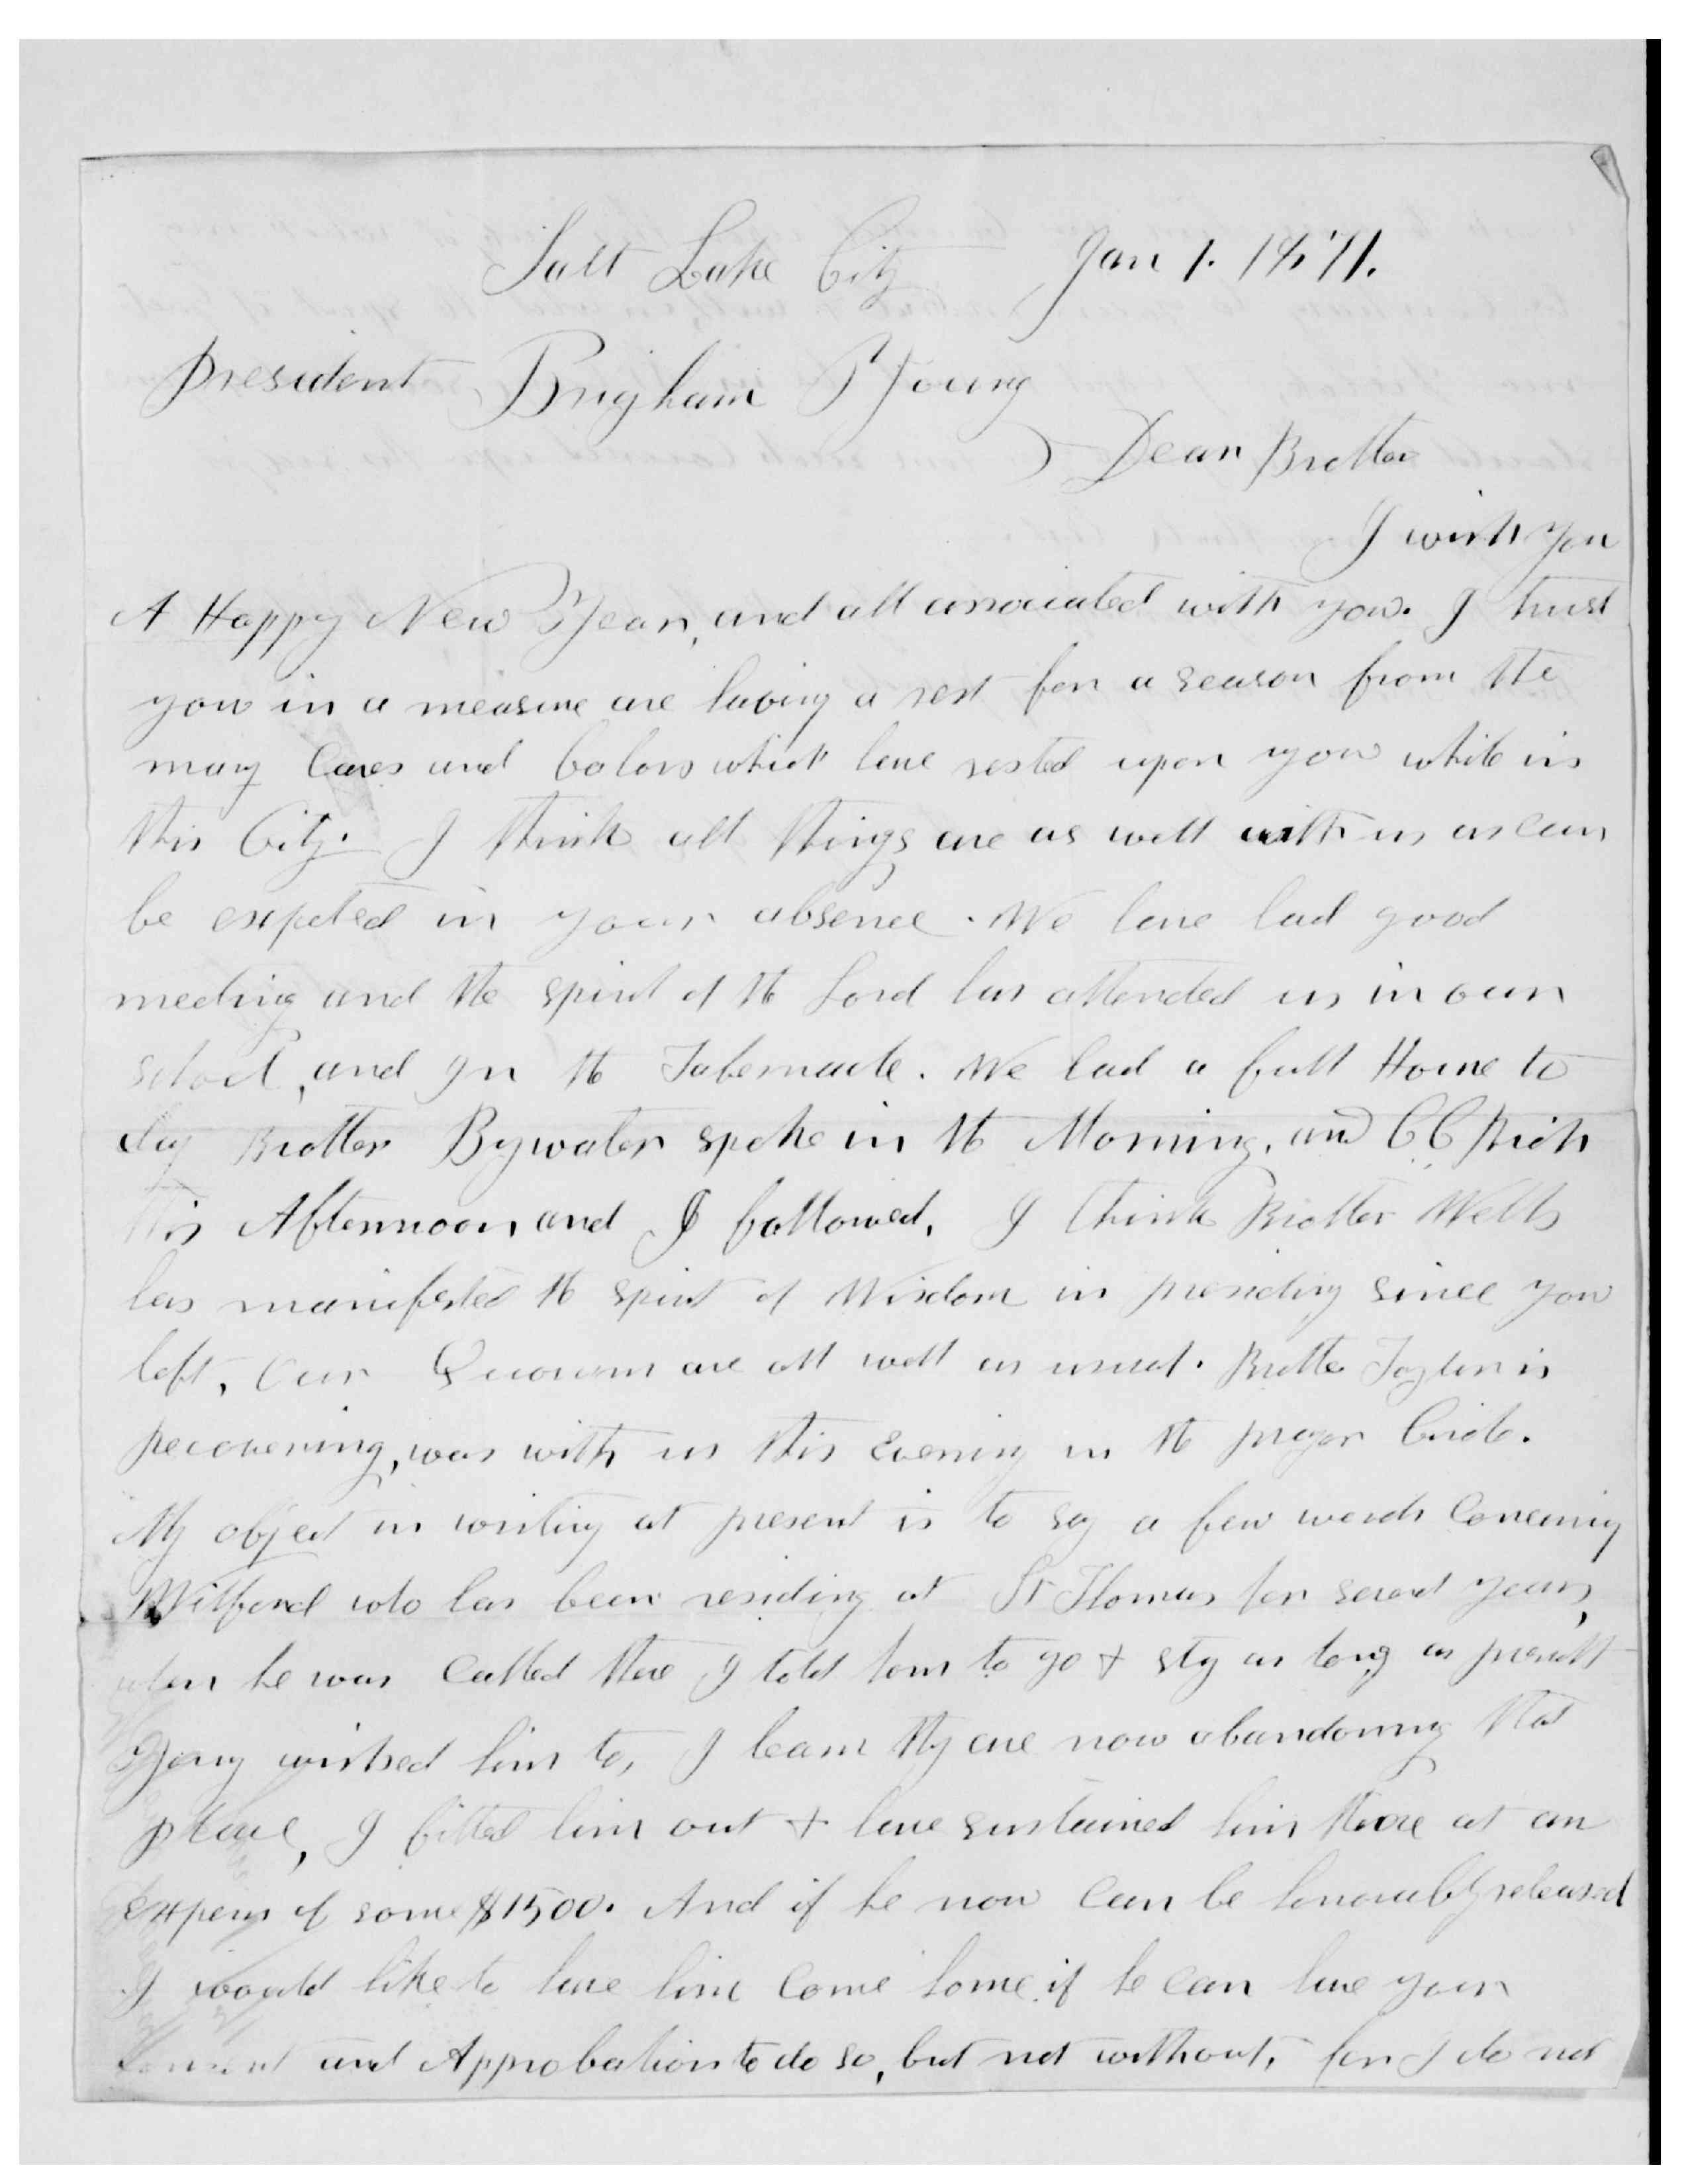 Salt Lake City Jan 1. 1871.
President Brigham Young
Dear Brother
I wish you
A Happy New Year, and all associated with you. I trust
you in a measure are having a rest for a season from the
many Cares and labors which have rested upon you while in
this City. I think all things are as well with us as can
be expected in your absence. We have had good
meeting and the spirit of the Lord has attended us in our
school, and In the Tabernacle. We had a full House to
day Brother Bywater spoke in the Morning, and C C Rich
this Afternoon and I followed, I think Brother Wells
has manifested the spirit of Wisdom in presiding since you
left, Our Quorum are all well as usual. Brother Taylor is
Recovering, was with us this Evening in the prayer Circle.
My object in writing at present is to say a few words Concerning
Wilford who has been residing at St Thomas for several years,
when he was Called there I told him to go & stay as long as presidt
Young wished him to, I learn they are now abandoning that
place, I fitted him out & have sustained him there at an
Expens of some $1500. And if he now Can be honorably released
I would like to have him Come home if he Can have your
and Approbation to do so, but not without, for I do not